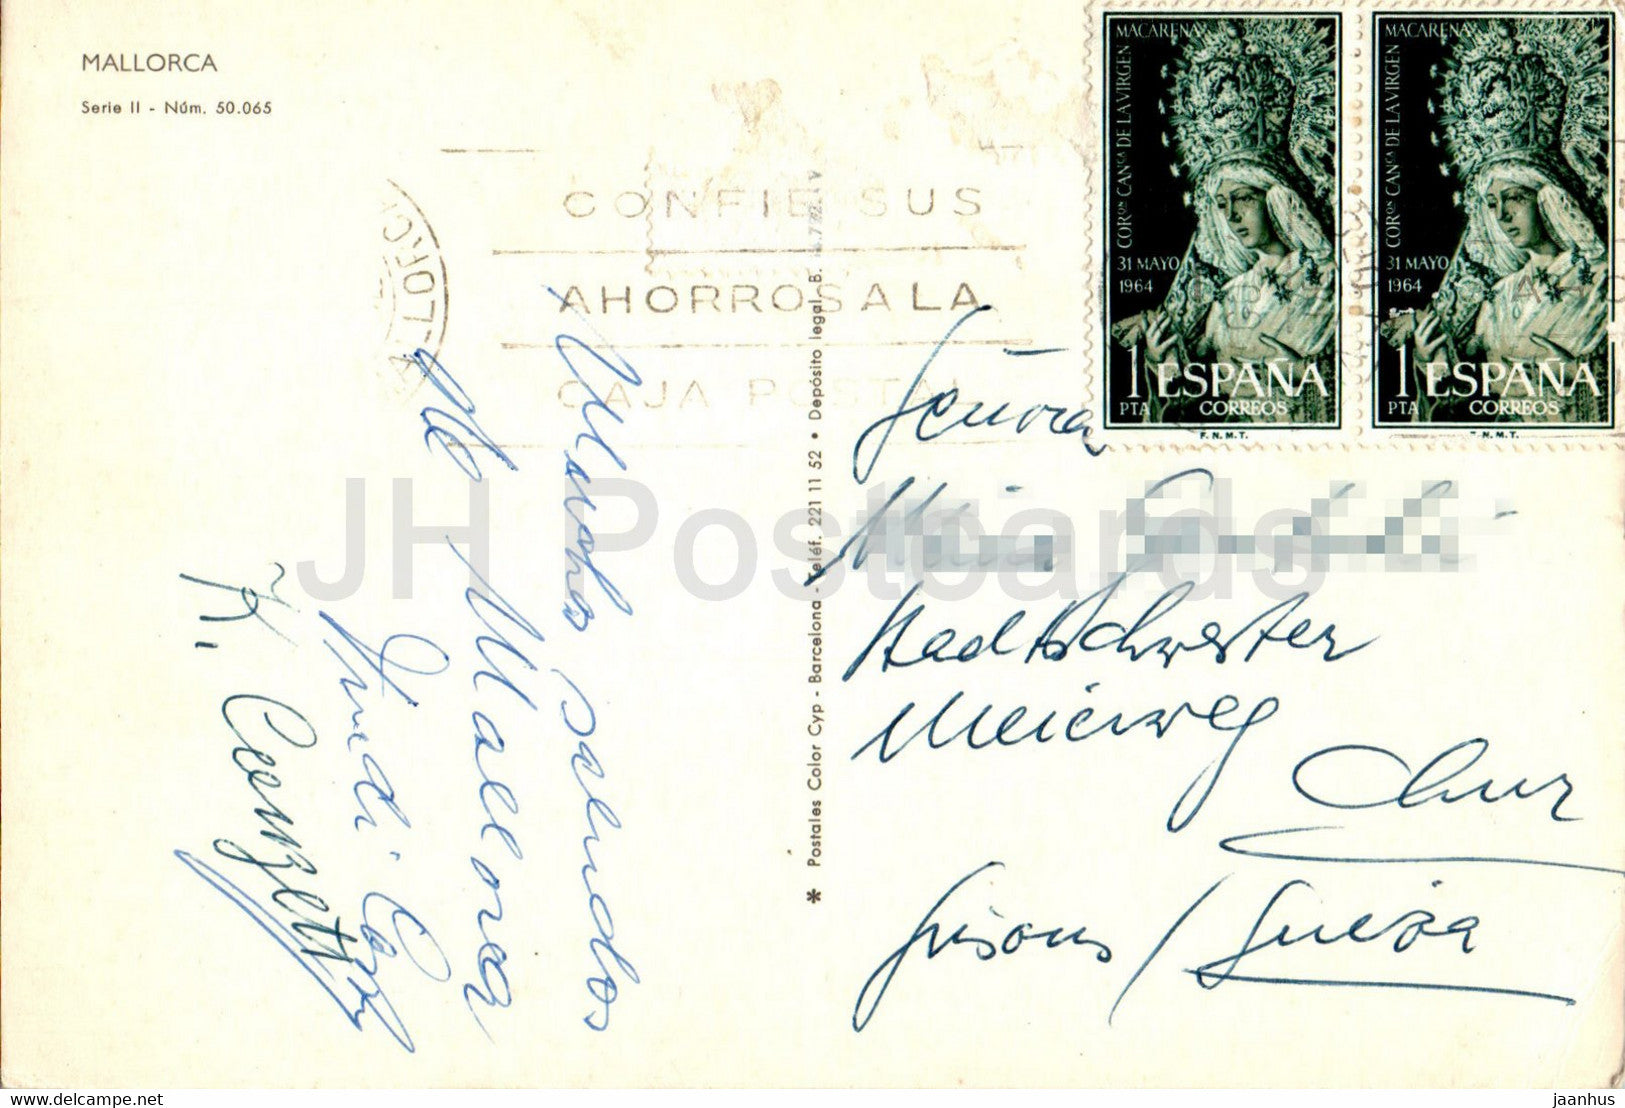 MALLORCA
Serie II - Núm. 50.065
CONFIE SUS
AHORROS A LA
CAJA POSTAL
MALLORCA
MACARENA
CORºⁿ CANᶜᵃ DE LA VIRGEN
31 MAYO
1964
1 PTA
ESPAÑA
CORREOS
F.N.M.T.
MACARENA
CORºⁿ CANᶜᵃ DE LA VIRGEN
31 MAYO
1964
1 PTA
ESPAÑA
CORREOS
F.N.M.T.
Muchos saludos
de Mallorca
* Postales Color Cyp - Barcelona - Teléf. 221 11 52 • Depósito legal, B.
Señora
Stadtschwester
Meierweg
Chur
Grisons / Sueiza
JH Postcards
delcampe.net
jaanhus